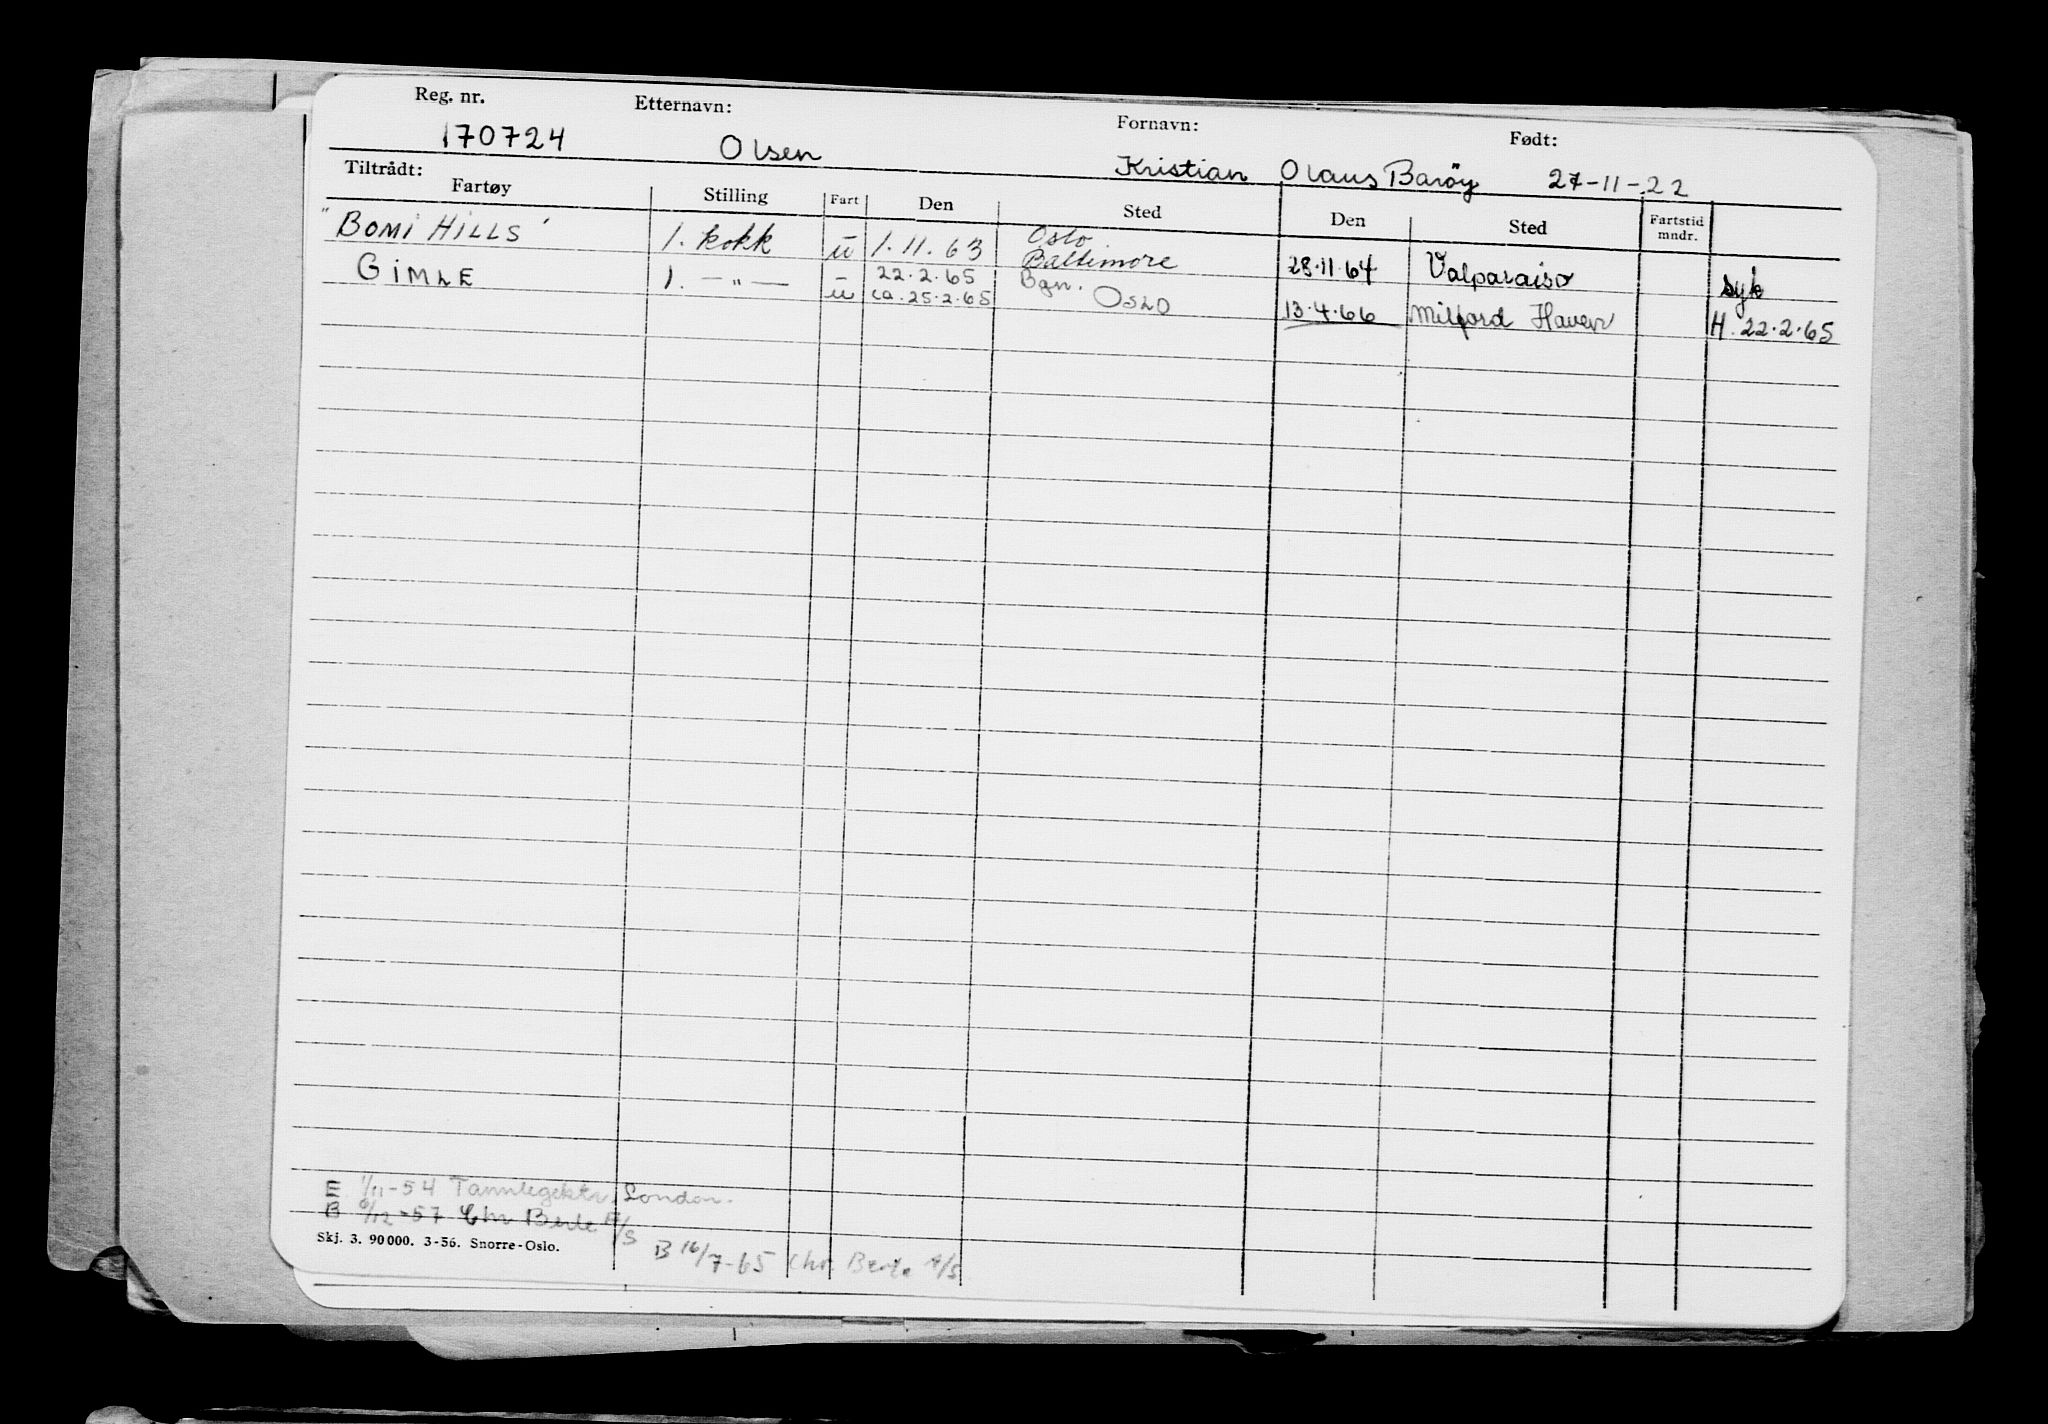 Reg. nr. Etternavn: Fornavn: Født:
170724 Olsen Kristian Olaus Barøy 27-11-22
Tiltrådt:
Fartøy Stilling Fart Den Sted Den Sted Fartstid mndr.
"BOMI HILLS" 1. kokk u 1.11.63 Oslo Baltimore 28.11.64 Valparaiso syk
GIMLE 1. —"— – 22.2.65 Bgn.
u ca. 25.2.65 OSLO 13.4.66 Milford Haven H. 22.2.65
E 1/11-54 Tannlegektr. London.
B 6/12-57 Chr Berle A/S
Skj. 3. 90 000. 3-56. Snorre-Oslo.
B 16/7-65 Chr. Berle A/S